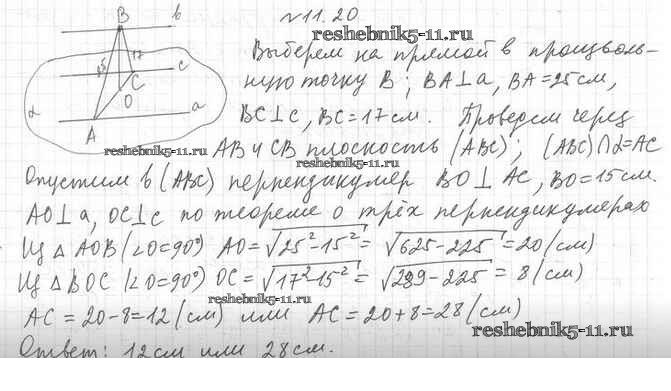 №11.20
reshebnik5-11.ru
Выберем на прямой в произволь-
ную точку B; BA⊥a, BA=25см,
BC⊥c, BC=17см. Проведем через
reshebnik5-11.ru
AB и CB плоскость (ABC); (ABC)∩α=AC
reshebnik5-11.ru
Опустим в (ABC) перпендикуляр BO⊥AC, BO=15см.
AO⊥a, OC⊥c по теореме о трёх перпендикулярах
Из △AOB(∠O=90°) AO=√25²-15²=√625-225=20(см)
Из △BOC(∠O=90°) OC=√17²-15²=√289-225=8(см)
reshebnik5-11.ru
AC=20-8=12(см) или AC=20+8=28(см)
reshebnik5-11.ru
Ответ: 12см или 28см.
B
b
25
17
c
C
O
α
a
A